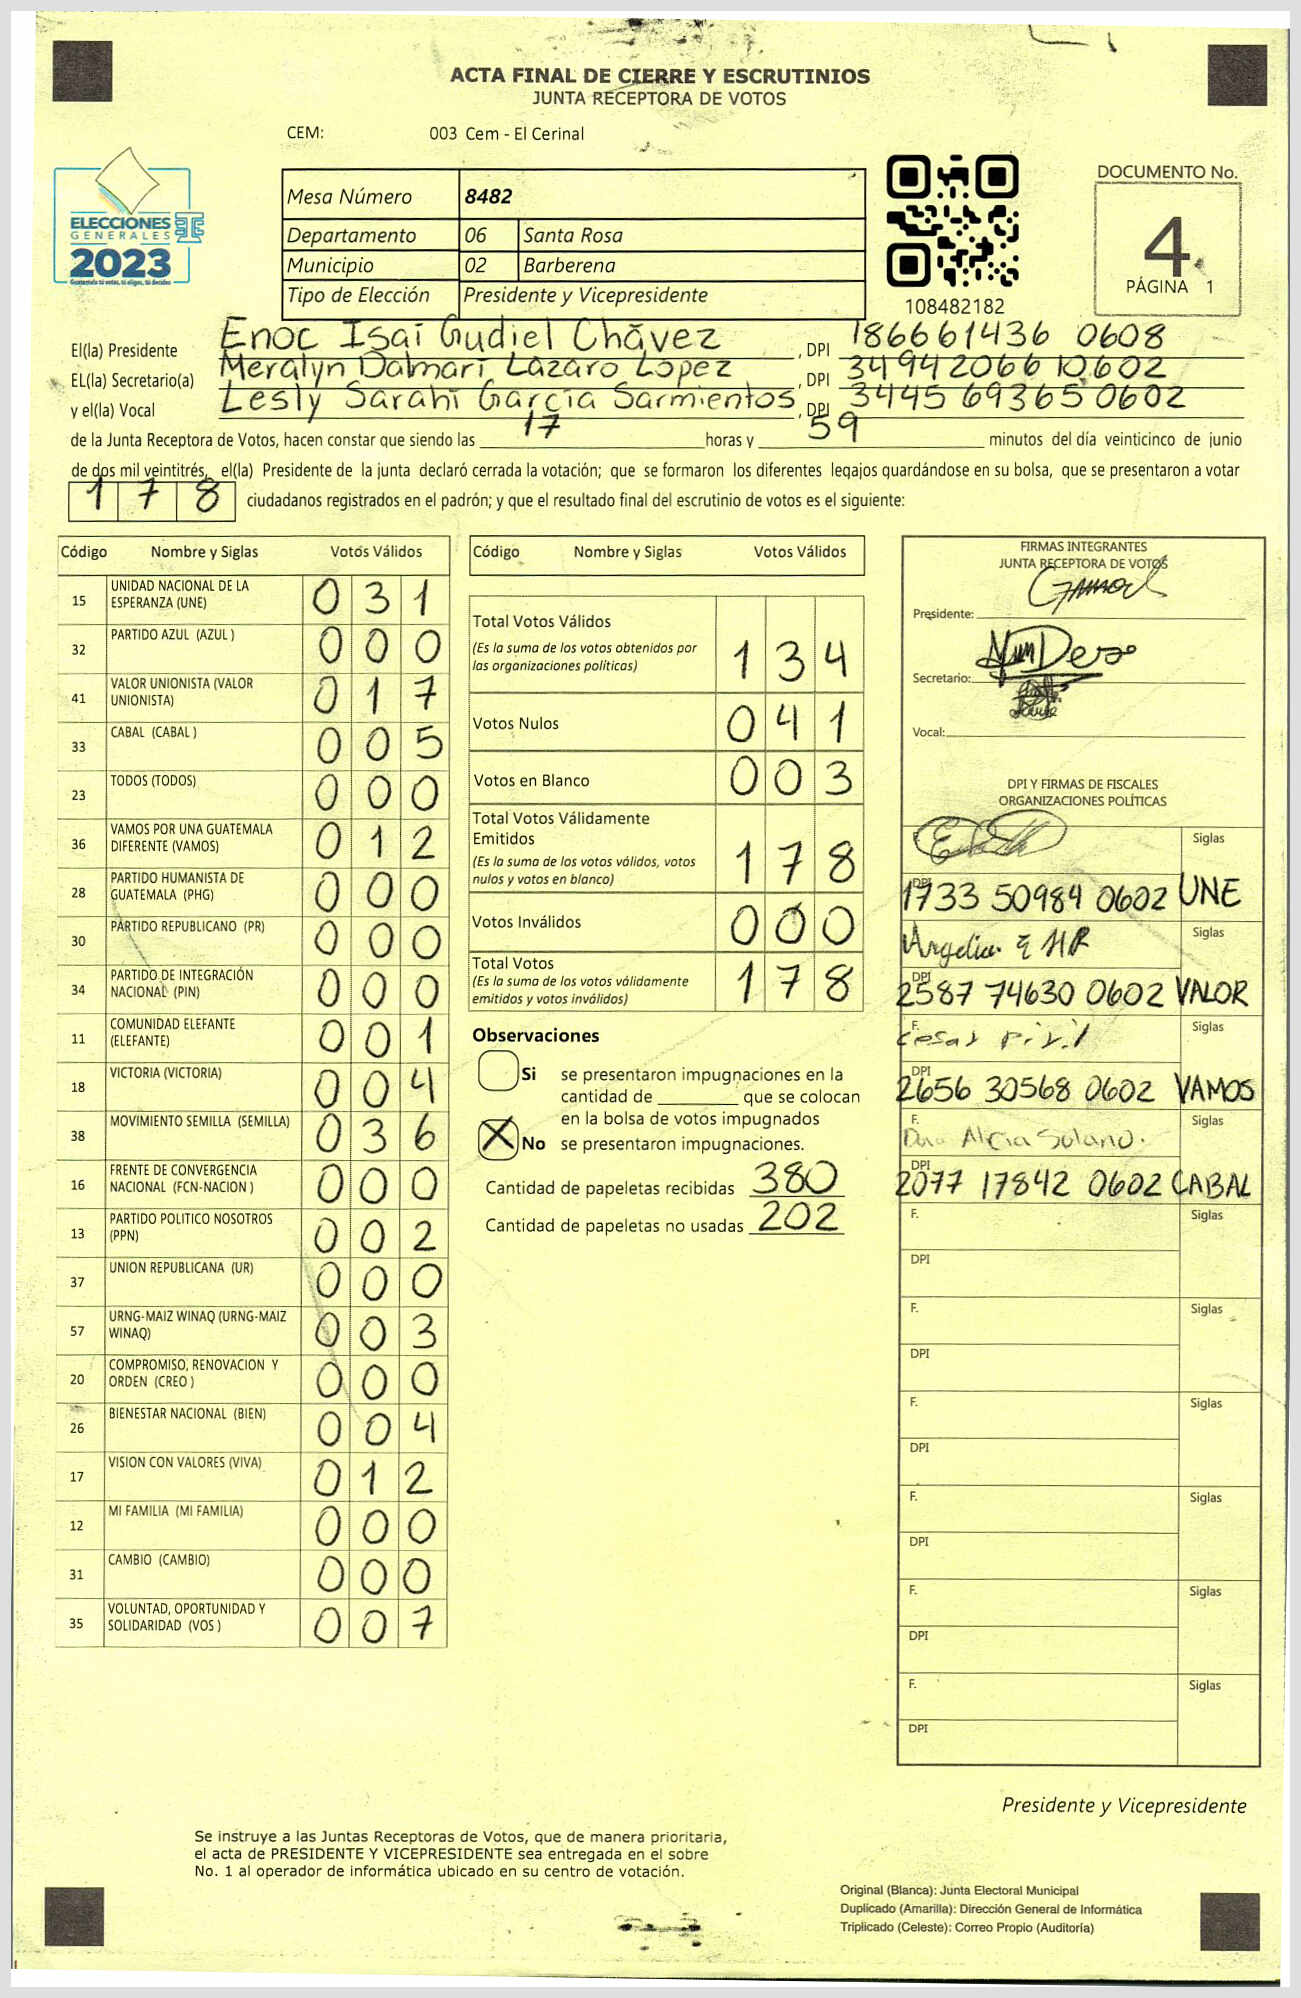 ACTA FINAL DE CIERRE Y ESCRUTINIOS
JUNTA RECEPTORA DE VOTOS
CEM: 003 Cem - El Cerinal
ELECCIONES
GENERALES
2023
Guatemala tú votas, tú eliges, tú decides
Mesa Número 8482
Departamento 06 Santa Rosa
Municipio 02 Barberena
Tipo de Elección Presidente y Vicepresidente
108482182
DOCUMENTO No.
4
PÁGINA 1
El(la) Presidente Enoc Isaí Gudiel Chávez, DPI 186661436 0608
EL(la) Secretario(a) Meralyn Dalmarí Lázaro López, DPI 34942066 10602
y el(la) Vocal Lesly Sarahí García Sarmientos, DPI 3445 69365 0602
de la Junta Receptora de Votos, hacen constar que siendo las 17 horas y 59 minutos del día veinticinco de junio
de dos mil veintitrés, el(la) Presidente de la junta declaró cerrada la votación; que se formaron los diferentes legajos guardándose en su bolsa, que se presentaron a votar
178 ciudadanos registrados en el padrón; y que el resultado final del escrutinio de votos es el siguiente:
Código Nombre y Siglas Votos Válidos
15 UNIDAD NACIONAL DE LA ESPERANZA (UNE) 0 3 1
32 PARTIDO AZUL (AZUL ) 0 0 0
41 VALOR UNIONISTA (VALOR UNIONISTA) 0 1 7
33 CABAL (CABAL ) 0 0 5
23 TODOS (TODOS) 0 0 0
36 VAMOS POR UNA GUATEMALA DIFERENTE (VAMOS) 0 1 2
28 PARTIDO HUMANISTA DE GUATEMALA (PHG) 0 0 0
30 PARTIDO REPUBLICANO (PR) 0 0 0
34 PARTIDO DE INTEGRACIÓN NACIONAL (PIN) 0 0 0
11 COMUNIDAD ELEFANTE (ELEFANTE) 0 0 1
18 VICTORIA (VICTORIA) 0 0 4
38 MOVIMIENTO SEMILLA (SEMILLA) 0 3 6
16 FRENTE DE CONVERGENCIA NACIONAL (FCN-NACION ) 0 0 0
13 PARTIDO POLITICO NOSOTROS (PPN) 0 0 2
37 UNION REPUBLICANA (UR) 0 0 0
57 URNG-MAIZ WINAQ (URNG-MAIZ WINAQ) 0 0 3
20 COMPROMISO, RENOVACION Y ORDEN (CREO ) 0 0 0
26 BIENESTAR NACIONAL (BIEN) 0 0 4
17 VISION CON VALORES (VIVA) 0 1 2
12 MI FAMILIA (MI FAMILIA) 0 0 0
31 CAMBIO (CAMBIO) 0 0 0
35 VOLUNTAD, OPORTUNIDAD Y SOLIDARIDAD (VOS ) 0 0 7
Código Nombre y Siglas Votos Válidos
Total Votos Válidos
(Es la suma de los votos obtenidos por
las organizaciones políticas) 1 3 4
Votos Nulos 0 4 1
Votos en Blanco 0 0 3
Total Votos Válidamente
Emitidos
(Es la suma de los votos válidos, votos
nulos y votos en blanco) 1 7 8
Votos Inválidos 0 0 0
Total Votos
(Es la suma de los votos válidamente
emitidos y votos inválidos) 1 7 8
Observaciones
Si se presentaron impugnaciones en la
cantidad de ________ que se colocan
en la bolsa de votos impugnados
X No se presentaron impugnaciones.
Cantidad de papeletas recibidas 380
Cantidad de papeletas no usadas 202
FIRMAS INTEGRANTES
JUNTA RECEPTORA DE VOTOS
Presidente:
Secretario:
Vocal:
DPI Y FIRMAS DE FISCALES
ORGANIZACIONES POLÍTICAS
F. Siglas
DPI 1733 50984 0602 UNE
Siglas
DPI 2587 74630 0602 VALOR
F. Cesar Siglas
DPI 2656 30568 0602 VAMOS
F. Alcia Solano. Siglas
DPI 2077 17842 0602 CABAL
F. Siglas
DPI
F. Siglas
DPI
F. Siglas
DPI
F. Siglas
DPI
F. Siglas
DPI
F. Siglas
DPI
Presidente y Vicepresidente
Se instruye a las Juntas Receptoras de Votos, que de manera prioritaria,
el acta de PRESIDENTE Y VICEPRESIDENTE sea entregada en el sobre
No. 1 al operador de informática ubicado en su centro de votación.
Original (Blanca): Junta Electoral Municipal
Duplicado (Amarilla): Dirección General de Informática
Triplicado (Celeste): Correo Propio (Auditoría)